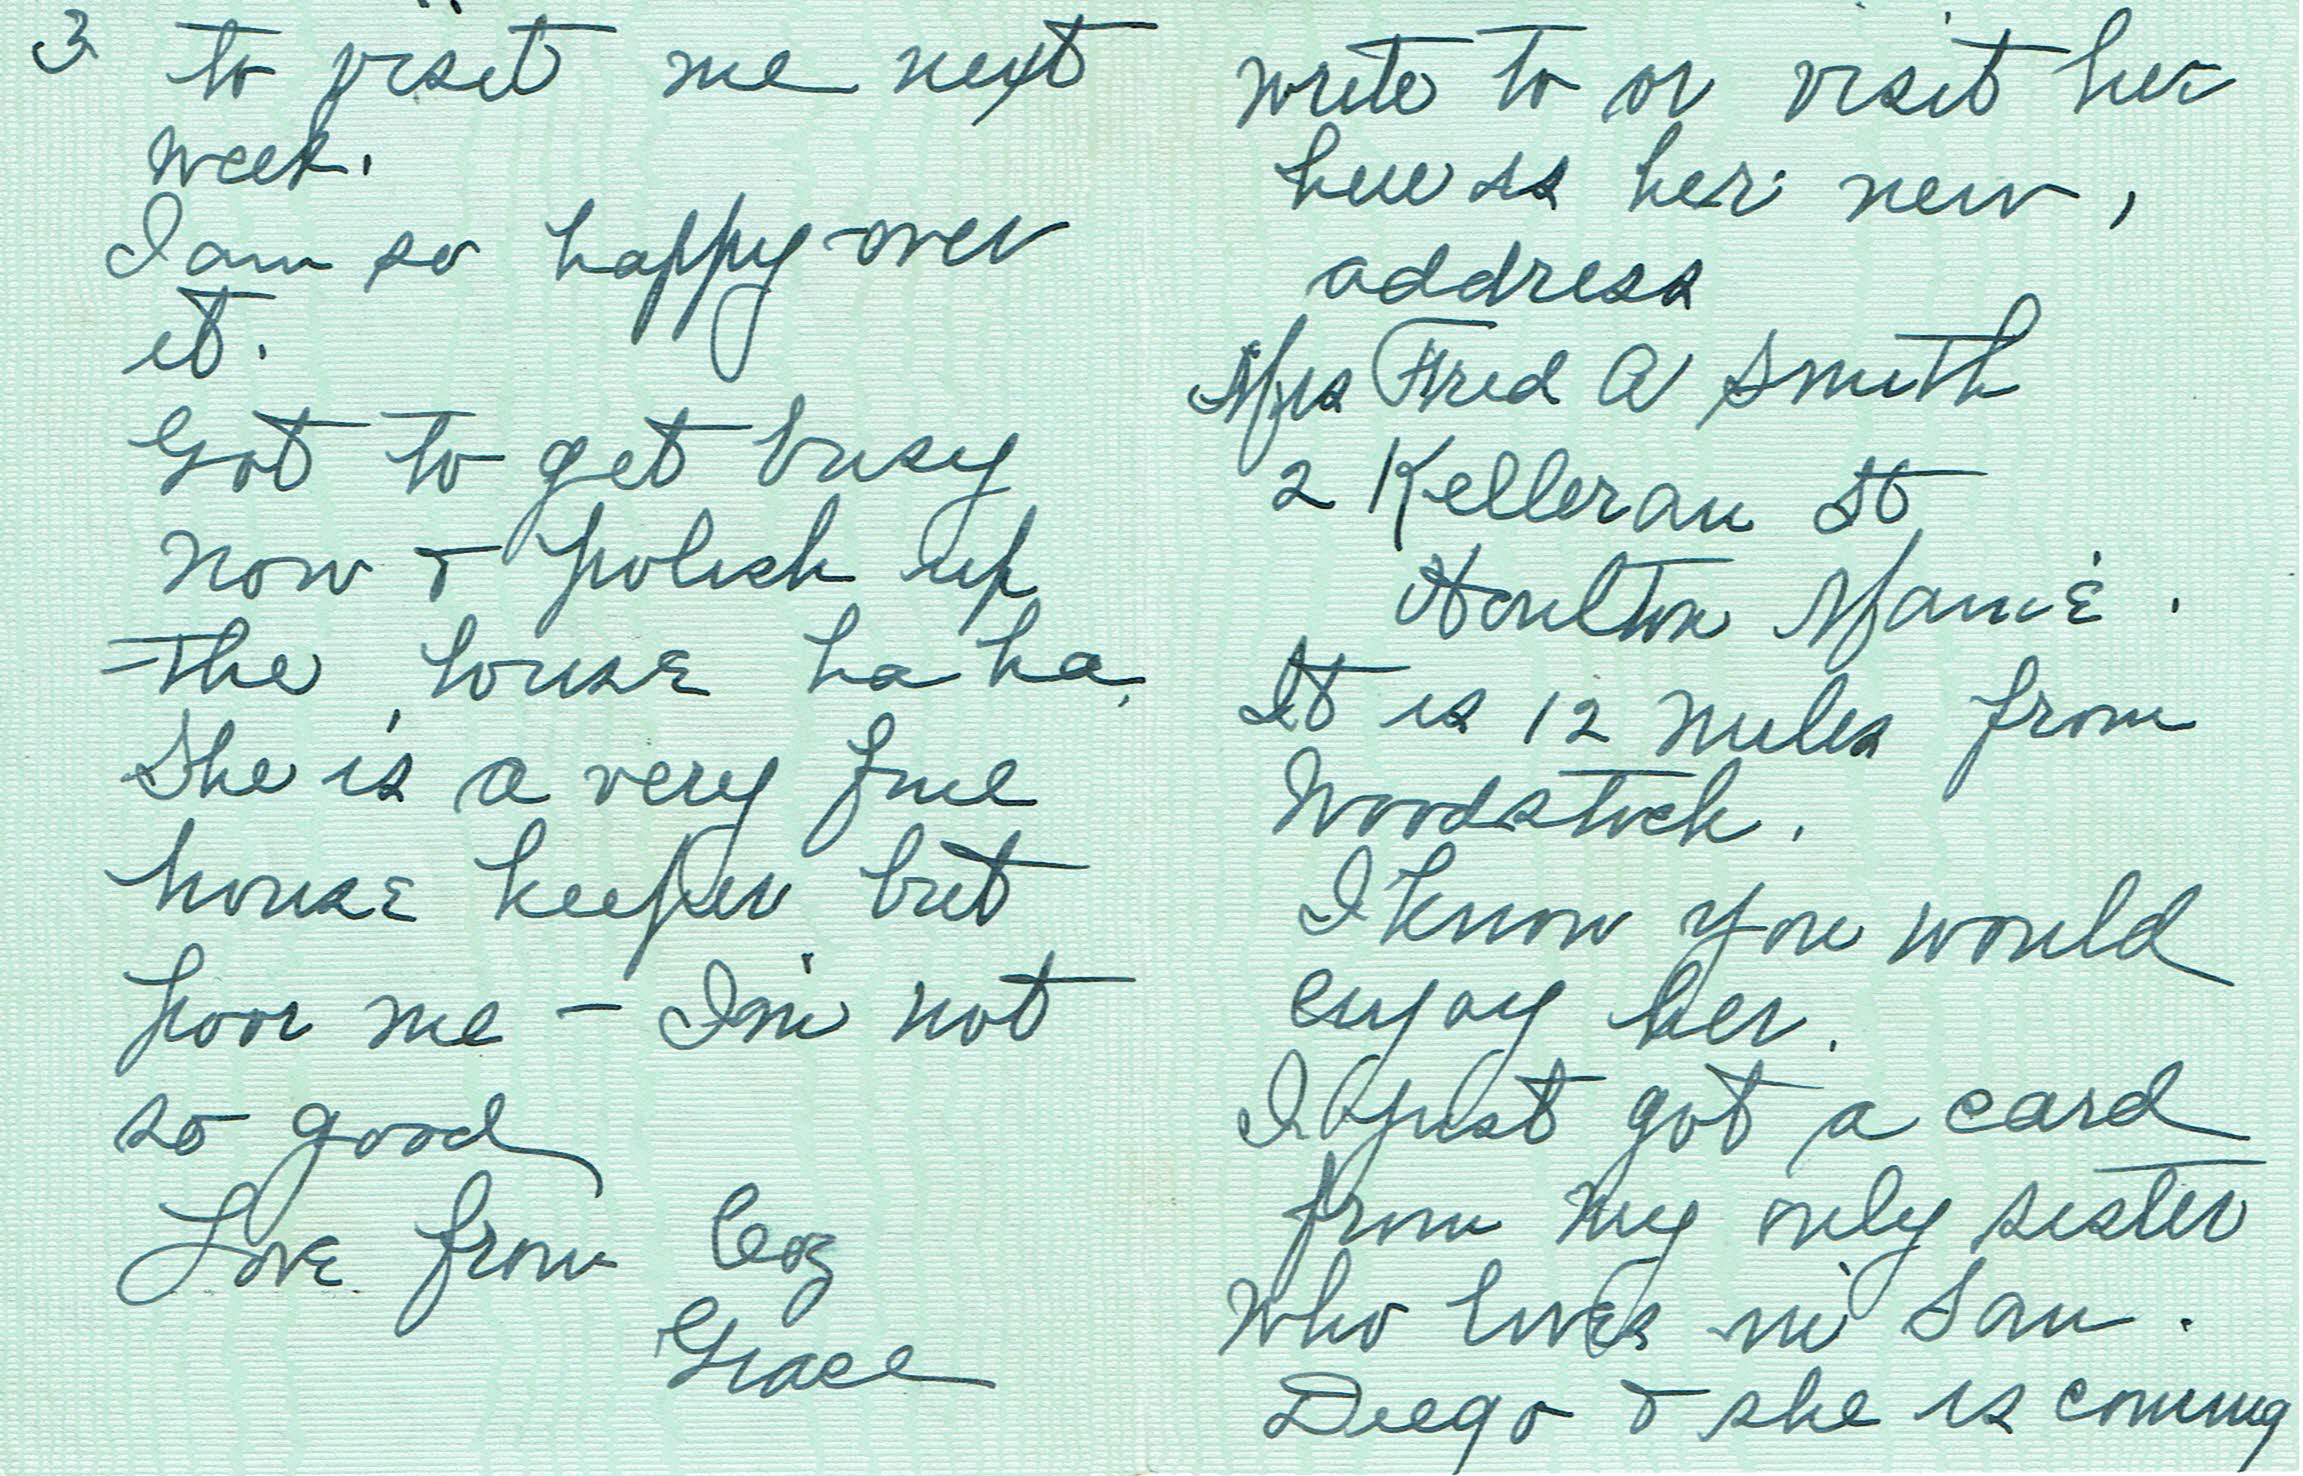 3
to visit me next
week.
I am so happy over
it.
Got to get busy
now & polish up
the house ha ha.
She is a very fine
house keeper but
poor me – I'm not
so good
Love from Coz
Grace
write to or visit her
here is her new,
address
Mrs Fred A Smith
2 Kelleran St
Houlton Maine.
It is 12 miles from
Woodstock.
I know you would
enjoy her.
I just got a card
from my only sister
who lives in San.
Diego & she is coming